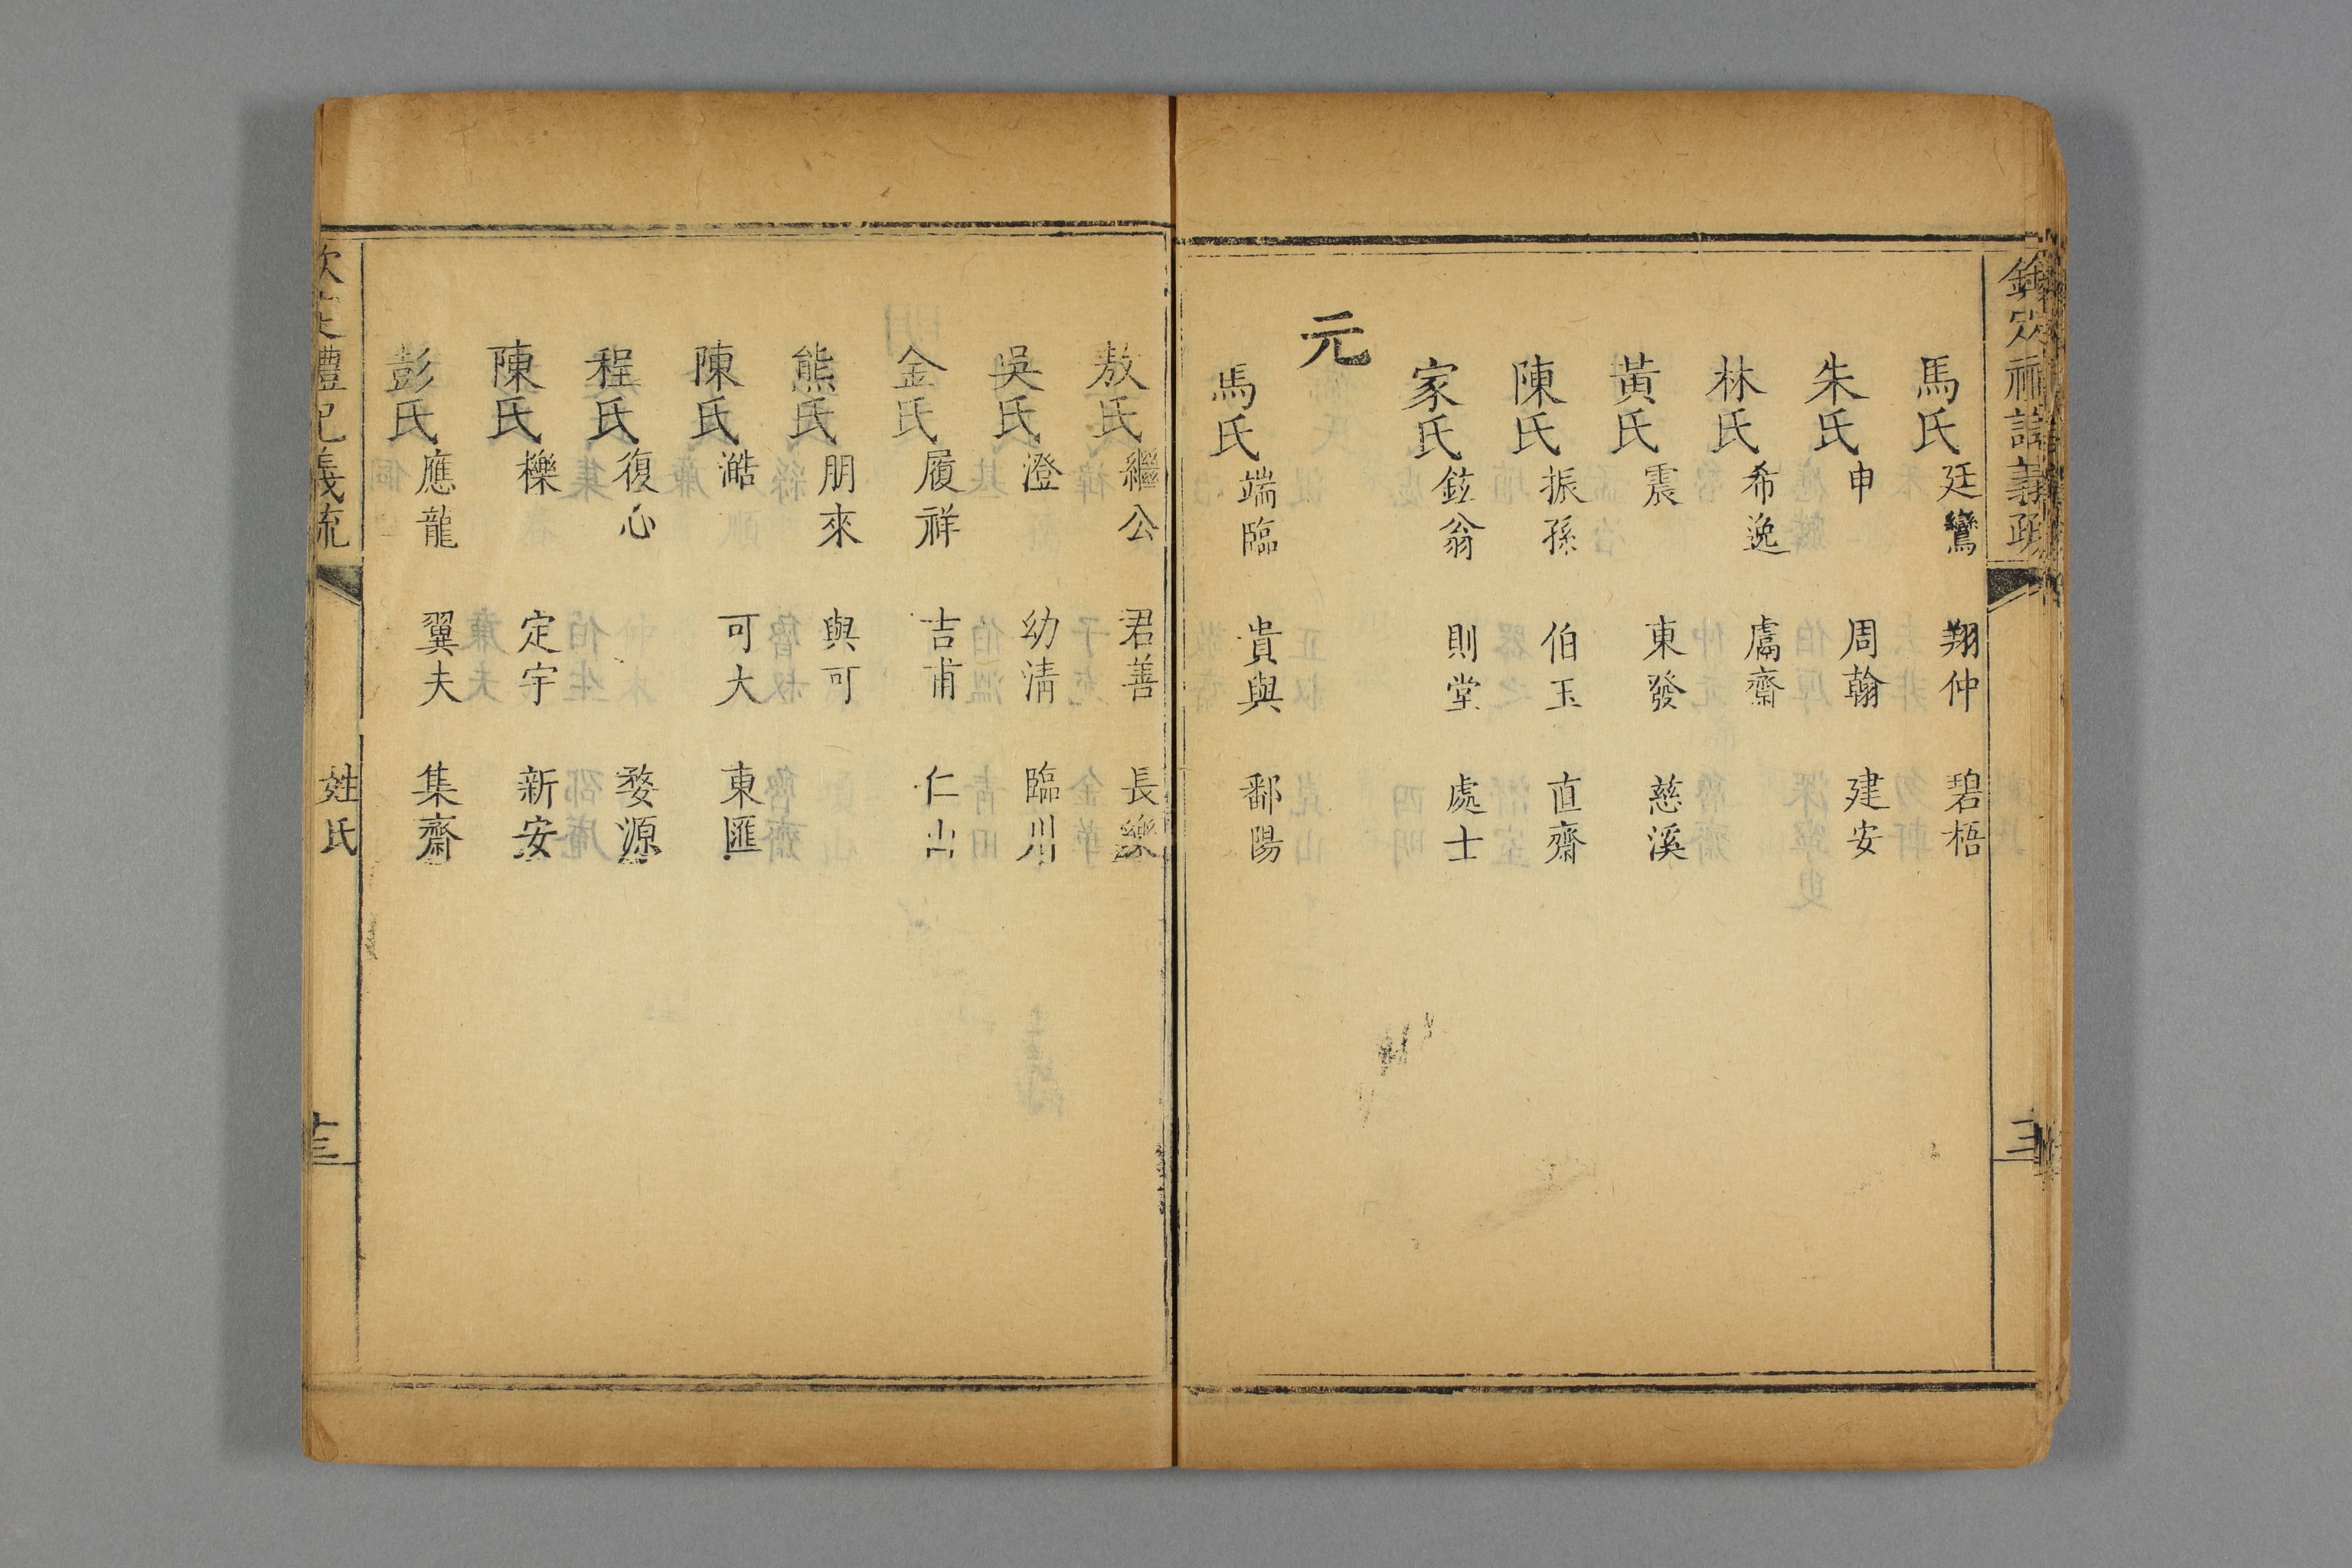 欽定禮記義疏
馬氏廷鸞 翔仲 碧梧
朱氏申 周翰 建安
林氏希逸 鬳齋
黃氏震 東發 慈溪
陳氏振孫 伯玉 直齋
家氏鉉翁 則堂 處士
元
馬氏端臨 貴與 鄱陽
敖氏繼公 君善 長樂
吳氏澄 幼清 臨川
金氏履祥 吉甫 仁山
熊氏朋來 與可
陳氏澔 可大 東匯
程氏復心 婺源
陳氏櫟 定宇 新安
彭氏應龍 翼夫 集齋
欽定禮記義疏 姓氏